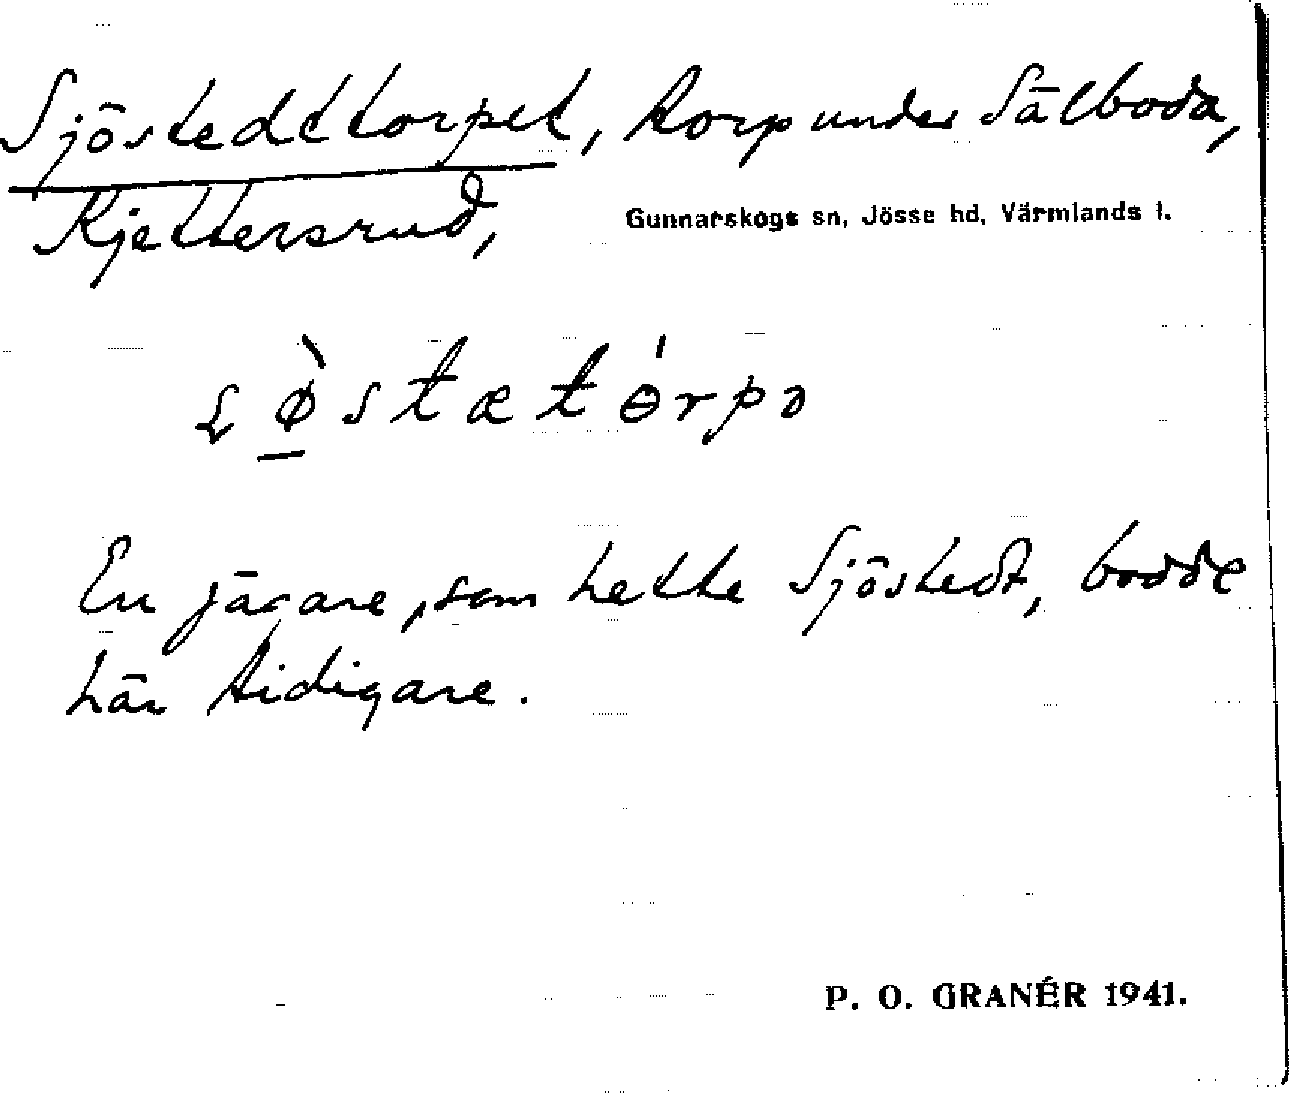 Sjöstedttorpet, torp under Sälboda,
Kjettersrud,
Gunnarskogs sn, Jösse hd, Värmlands l.
En jägare, som hette Sjöstedt, bodde
här tidigare.
P. O. GRANÉR 1941.